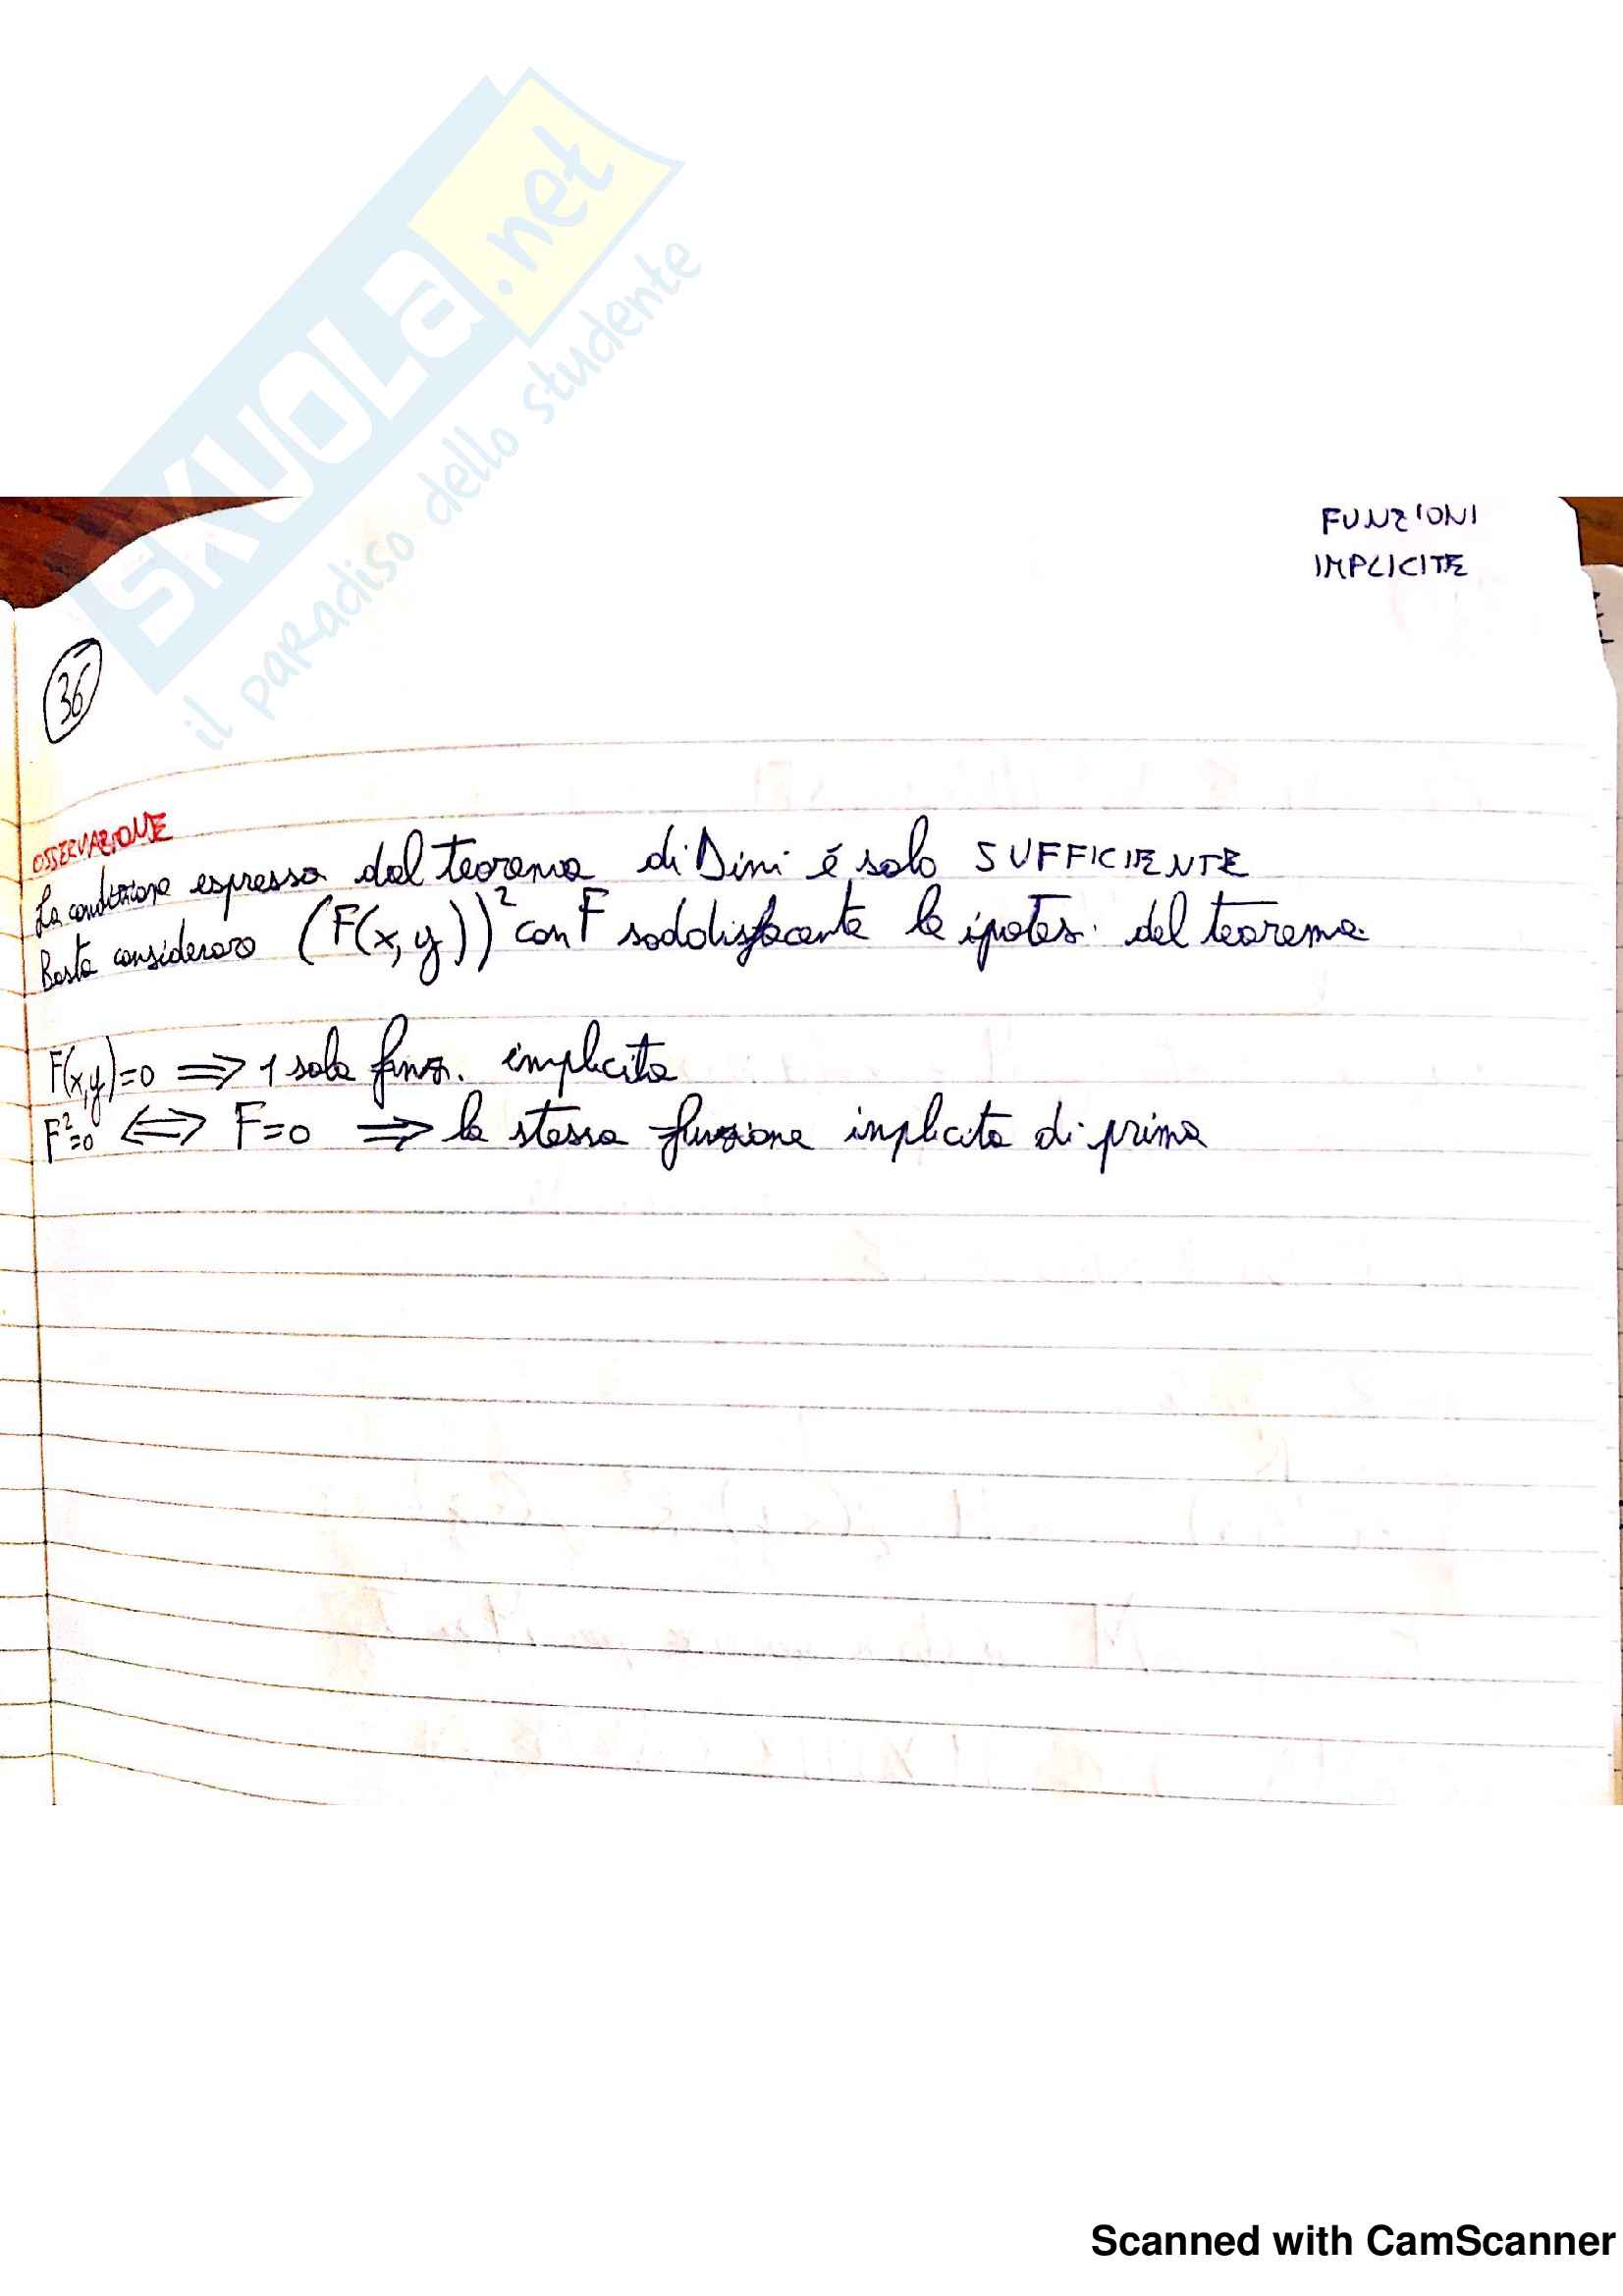 SKUOLA.net
il paradiso dello studente
FUNZIONI
IMPLICITE
36
OSSERVAZIONE
La condizione espressa dal teorema di Dini é solo SUFFICIENTE
Basta considerare (F(x,y))² con F soddisfacente le ipotesi del teorema.
F(x,y)=0 ⟹ 1 sola funz. implicita
F²=0 ⟺ F=0 ⟹ la stessa funzione implicita di prima
Scanned with CamScanner